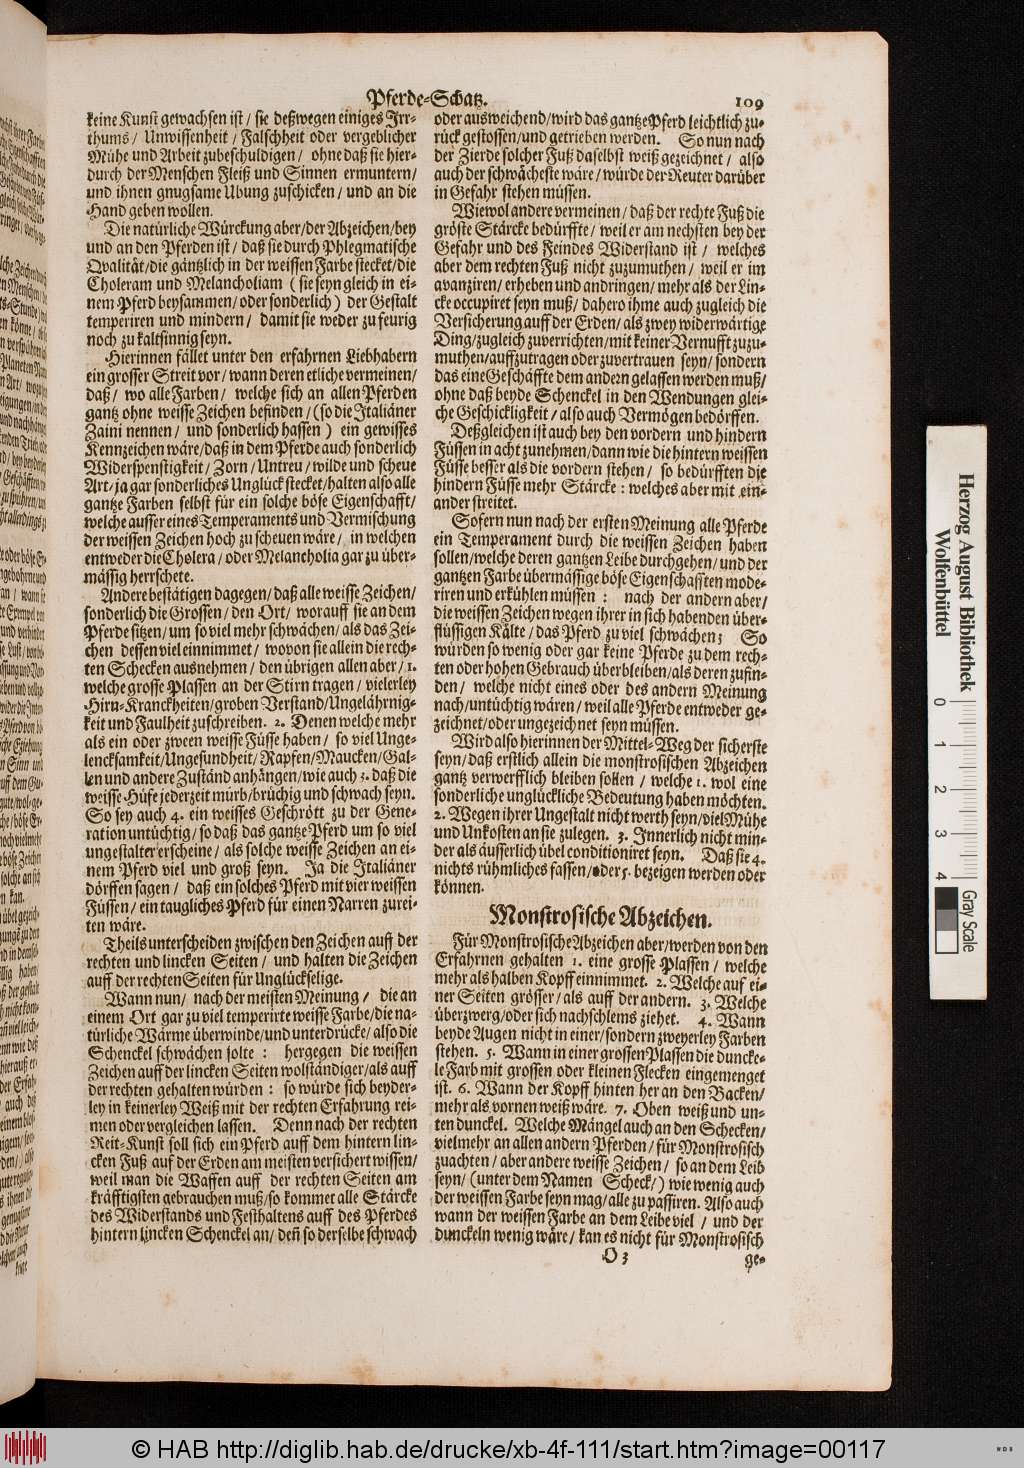 Pferde-Schatz. 109
keine Kunst gewachsen ist/ sie deßwegen einiges Irr-
thums/ Unwissenheit/ Falschheit oder vergeblicher
Mühe und Arbeit zubeschuldigen/ ohne daß sie hier-
durch der Menschen Fleiß und Sinnen ermuntern/
und ihnen gnugsame Ubung zuschicken/ und an die
Hand geben wollen.
Die natürliche Würckung aber/der Abzeichen/bey
und an den Pferden ist/ daß sie durch Phlegmatische
Qvalität/die gäntzlich in der weissen Farbe stecket/die
Choleram und Melancholiam (sie seyn gleich in ei-
nem Pferd beysammen/oder sonderlich) der Gestalt
temperiren und mindern/ damit sie weder zu feurig
noch zu kaltsinnig seyn.
Hierinnen fället unter den erfahrnen Liebhabern
ein grosser Streit vor/ wann deren etliche vermeinen/
daß/ wo alle Farben/ welche sich an allen Pferden
gantz ohne weisse Zeichen befinden/(so die Italiäner
Zaini nennen/ und sonderlich hassen) ein gewisses
Kennzeichen wäre/daß in dem Pferde auch sonderlich
Widerspenstigkeit/ Zorn/ Untreu/ wilde und scheue
Art/ ja gar sonderliches Unglück stecket/halten also alle
gantze Farben selbst für ein solche böse Eigenschafft/
welche ausser eines Temperaments und Vermischung
der weissen Zeichen hoch zu scheuen wäre/ in welchen
entweder die Cholera/ oder Melancholia gar zu über-
mässig herrschete.
Andere bestätigen dagegen/ daß alle weisse Zeichen/
sonderlich die Grossen/ den Ort/ worauff sie an dem
Pferde sitzen/ um so viel mehr schwächen/ als das Zei-
chen dessen viel einnimmet/ wovon sie allein die rech-
ten Schecken ausnehmen/ den übrigen allen aber/ 1.
welche grosse Plassen an der Stirn tragen/ vielerley
Hirn-Kranckheiten/groben Verstand/Ungelährnig-
keit und Faulheit zuschreiben. 2. Denen welche mehr
als ein oder zween weisse Füsse haben/ so viel Unge-
lencksamkeit/Ungesundheit/ Rapfen/Maucken/Gal-
len und andere Zuständ anhängen/wie auch 3. daß die
weisse Hüfe jederzeit mürb/brüchig und schwach seyn.
So sey auch 4. ein weisses Geschrött zu der Gene-
ration untüchtig/ so daß das gantze Pferd um so viel
ungestalter erscheine/ als solche weisse Zeichen an ei-
nem Pferd viel und groß seyn. Ja die Italiäner
dörffen sagen/ daß ein solches Pferd mit vier weissen
Füssen/ ein taugliches Pferd für einen Narren zurei-
ten wäre.
Theils unterscheiden zwischen den Zeichen auff der
rechten und lincken Seiten/ und halten die Zeichen
auff der rechten Seiten für Unglückselige.
Wann nun/ nach der meisten Meinung/ die an
einem Ort gar zu viel temperirte weisse Farbe/die na-
türliche Wärme überwinde/und unterdrücke/ also die
Schenckel schwächen solte: hergegen die weissen
Zeichen auff der lincken Seiten wolständiger/als auff
der rechten gehalten würden: so würde sich beyder-
ley in keinerley Weiß mit der rechten Erfahrung rei-
men oder vergleichen lassen. Denn nach der rechten
Reit-Kunst soll sich ein Pferd auff dem hintern lin-
cken Fuß auf der Erden am meisten versichert wissen/
weil man die Waffen auff der rechten Seiten am
kräfftigsten gebrauchen muß/so kommet alle Stärcke
des Widerstands und Festhaltens auff des Pferdes
hintern lincken Schenckel an/ deñ so derselbe schwach
oder ausweichend/wird das gantze Pferd leichtlich zu-
rück gestossen/und getrieben werden. So nun nach
der Zierde solcher Fuß daselbst weiß gezeichnet/ also
auch der schwächeste wäre/würde der Reuter darüber
in Gefahr stehen müssen.
Wiewol andere vermeinen/ daß der rechte Fuß die
gröste Stärcke bedürffte/ weil er am nechsten bey der
Gefahr und des Feindes Widerstand ist/ welches
aber dem rechten Fuß nicht zuzumuthen/ weil er im
avanziren/ erheben und andringen/ mehr als der Lin-
cke occupiret seyn muß/ dahero ihme auch zugleich die
Versicherung auff der Erden/ als zwey widerwärtige
Ding/zugleich zuverrichten/mit keiner Vernufft zuzu-
muthen/auffzutragen oder zuvertrauen seyn/ sondern
das eine Geschäffte dem andern gelassen werden muß/
ohne daß beyde Schenckel in den Wendungen glei-
che Geschickligkeit/ also auch Vermögen bedörffen.
Deßgleichen ist auch bey den vordern und hindern
Füssen in acht zunehmen/dann wie die hintern weissen
Füsse besser als die vordern stehen/ so bedürfften die
hindern Füsse mehr Stärcke: welches aber mit ein-
ander streitet.
Sofern nun nach der ersten Meinung alle Pferde
ein Temperament durch die weissen Zeichen haben
sollen/welche deren gantzen Leibe durchgehen/ und der
gantzen Farbe übermässige böse Eigenschafften mode-
riren und erkühlen müssen: nach der andern aber/
die weissen Zeichen wegen ihrer in sich habenden über-
flüssigen Kälte/ das Pferd zu viel schwächen; So
würden so wenig oder gar keine Pferde zu dem rech-
ten oder hohen Gebrauch überbleiben/als deren zufin-
den/ welche nicht eines oder des andern Meinung
nach/untüchtig wären/ weil alle Pferde entweder ge-
zeichnet/oder ungezeichnet seyn müssen.
Wird also hierinnen der Mittel-Weg der sicherste
seyn/ daß erstlich allein die monstrosischen Abzeichen
gantz verwerfflich bleiben sollen/ welche 1. wol eine
sonderliche unglückliche Bedeutung haben möchten.
2. Wegen ihrer Ungestalt nicht werth seyn/viel Mühe
und Unkosten an sie zulegen. 3. Innerlich nicht min-
der als äusserlich übel conditioniret seyn. Daß sie 4.
nichts rühmliches fassen/oder 5. bezeigen werden oder
können.
Monstrosische Abzeichen.
Für Monstrosische Abzeichen aber/werden von den
Erfahrnen gehalten 1. eine grosse Plassen/ welche
mehr als halben Kopff einnimmet. 2. Welche auf ei-
ner Seiten grösser/als auff der andern. 3. Welche
überzwerg/oder sich nachschlems ziehet. 4. Wann
beyde Augen nicht in einer/sondern zweyerley Farben
stehen. 5. Wann in einer grossen Plassen die duncke-
le Farb mit grossen oder kleinen Flecken eingemenget
ist. 6. Wann der Kopff hinten her an den Backen/
mehr als vornen weiß wäre. 7. Oben weiß und un-
ten dunckel. Welche Mängel auch an den Schecken/
vielmehr an allen andern Pferden/ für Monstrosisch
zuachten/ aber andere weisse Zeichen/ so an dem Leib
seyn/ (unter dem Namen Scheck/) wie wenig auch
der weissen Farbe seyn mag/ alle zu passiren. Also auch
wann der weissen Farbe an dem Leibe viel/ und der
dunckeln wenig wäre/ kan es nicht für Monstrosisch
O 3 ge-
Herzog August Bibliothek
Wolfenbüttel
0 1 2 3 4
Gray Scale
© HAB http://diglib.hab.de/drucke/xb-4f-111/start.htm?image=00117
WDB